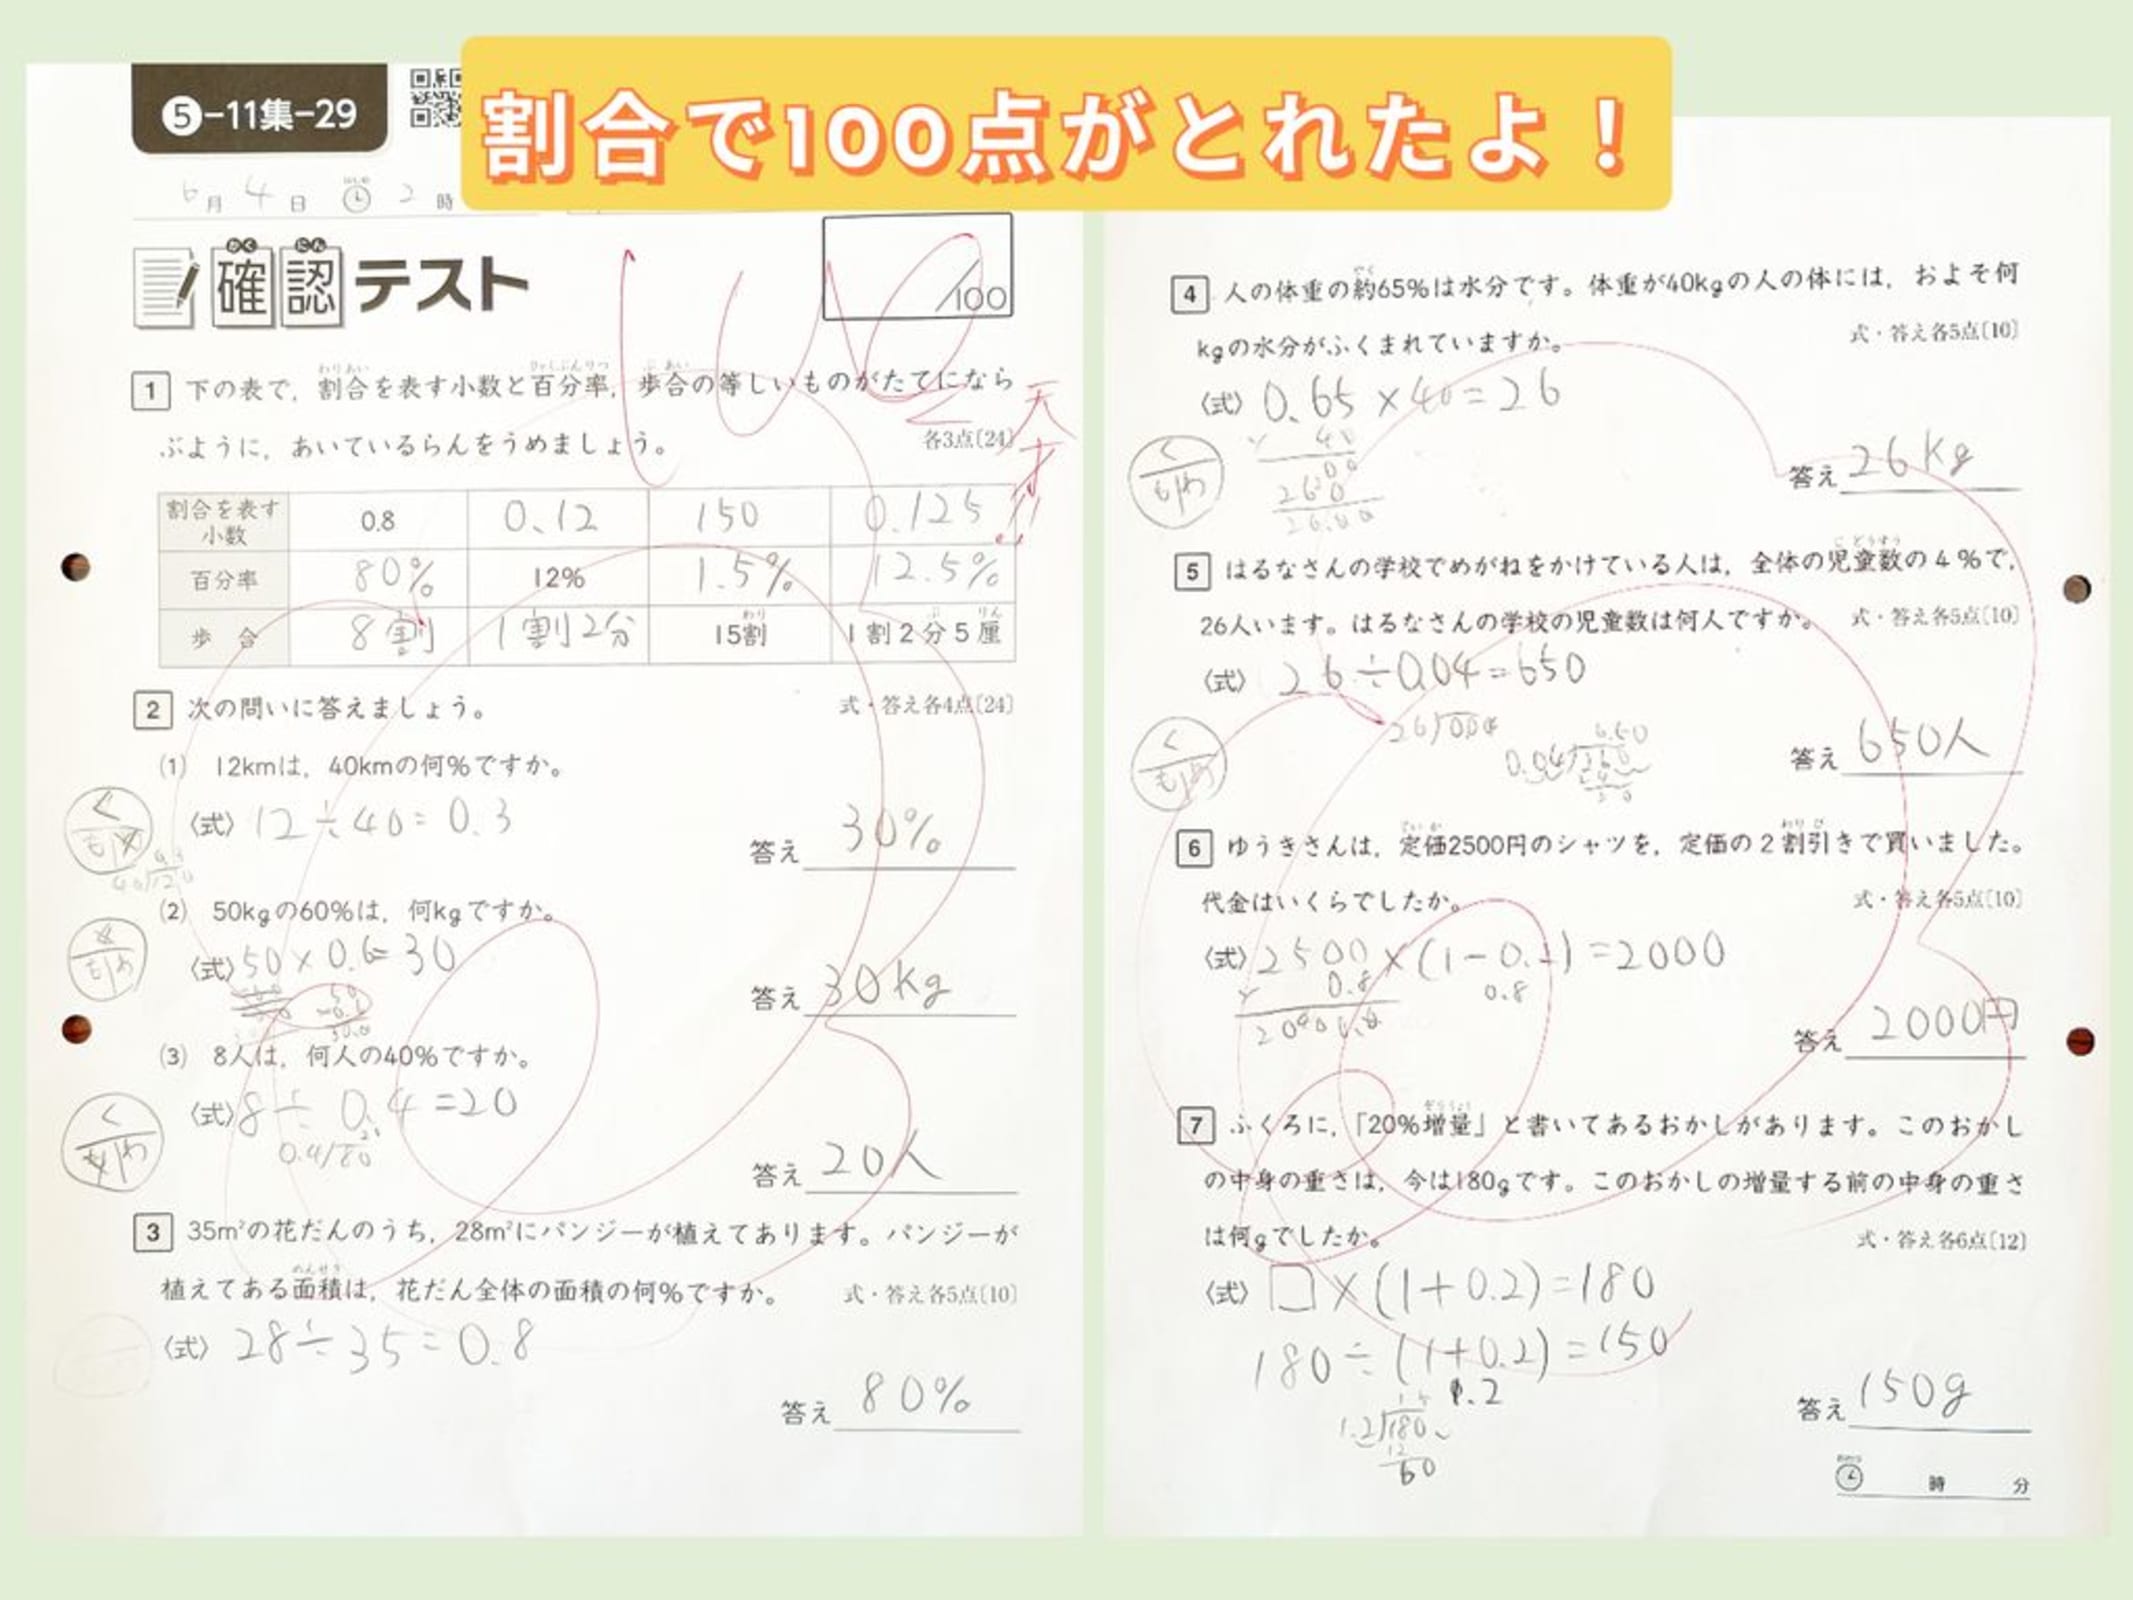 割合で100点がとれたよ！
5-11集-29
6月4日 2時
確認テスト
かく にん
100
/100
天才!!
1 下の表で，割合を表す小数と百分率，歩合の等しいものがたてになら
ぶように，あいているらんをうめましょう。
各3点〔24〕
割合を表す小数 0.8 0.12 150 0.125
百分率 80% 12% 1.5% 12.5%
歩合 8割 1割2分 15割 1割2分5厘
2 次の問いに答えましょう。 式・答え各4点〔24〕
(1) 12kmは，40kmの何%ですか。
〈式〉12÷40=0.3
答え 30%
(2) 50kgの60%は，何kgですか。
〈式〉50×0.6=30
答え 30kg
(3) 8人は，何人の40%ですか。
〈式〉8÷0.4=20
答え 20人
3 35m²の花だんのうち，28m²にパンジーが植えてあります。パンジーが
植えてある面積は，花だん全体の面積の何%ですか。 式・答え各5点〔10〕
〈式〉28÷35=0.8
答え 80%
4 人の体重の約65%は水分です。体重が40kgの人の体には，およそ何
kgの水分がふくまれていますか。 式・答え各5点〔10〕
〈式〉0.65×40=26
答え 26kg
5 はるなさんの学校でめがねをかけている人は，全体の児童数の4%で，
26人います。はるなさんの学校の児童数は何人ですか。 式・答え各5点〔10〕
〈式〉26÷0.04=650
答え 650人
6 ゆうきさんは，定価2500円のシャツを，定価の2割引きで買いました。
代金はいくらでしたか。 式・答え各5点〔10〕
〈式〉2500×(1-0.2)=2000
0.8 0.8
答え 2000円
7 ふくろに，「20%増量」と書いてあるおかしがあります。このおかし
の中身の重さは，今は180gです。このおかしの増量する前の中身の重さ
は何gでしたか。 式・答え各6点〔12〕
〈式〉□×(1+0.2)=180
180÷(1+0.2)=150
1.2
答え 150g
時 分